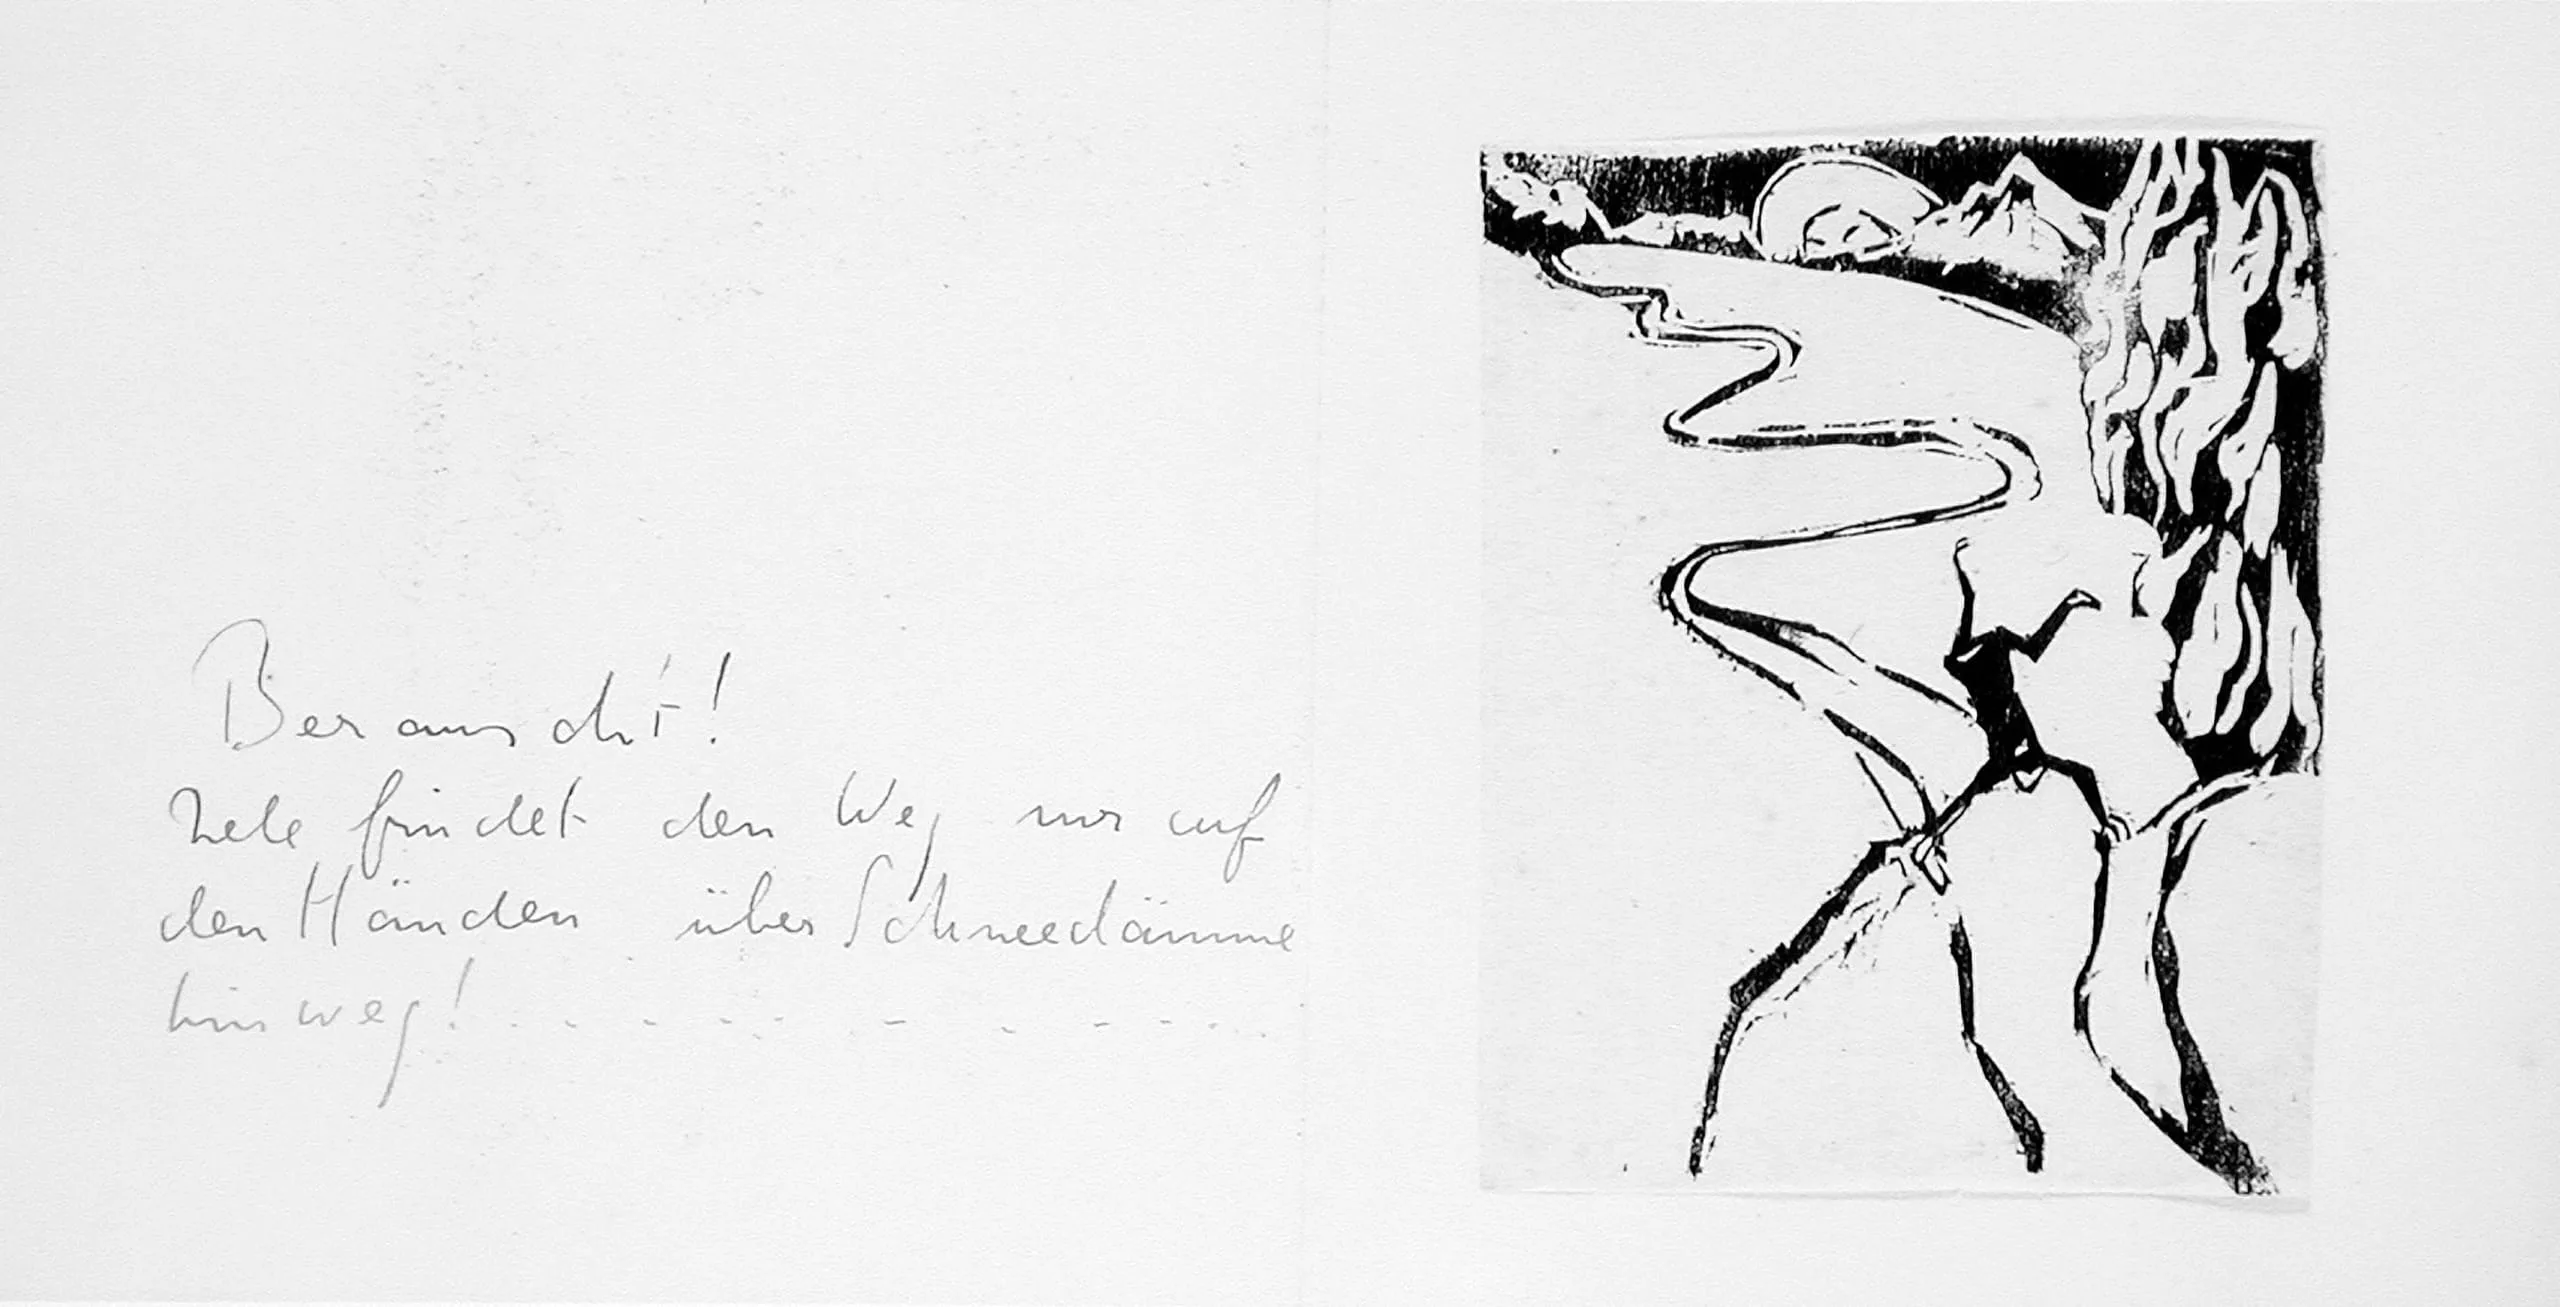 Berauscht!
findet den Weg nur auf
den Händen über Schneedämme
hinweg! . - - - - - - - - - . .